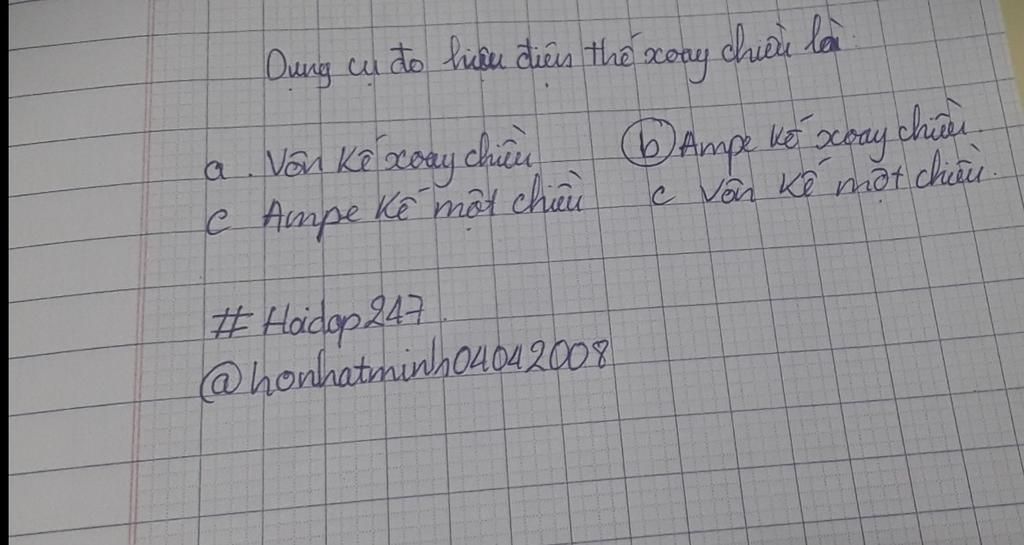 Dụng cụ đo hiệu điện thế xoay chiều là:
a. Vôn kế xoay chiều b Ampe kế xoay chiều.
c Ampe kế một chiều c Vôn kế một chiều.
# Hoidap247.
@honhatminh04042008